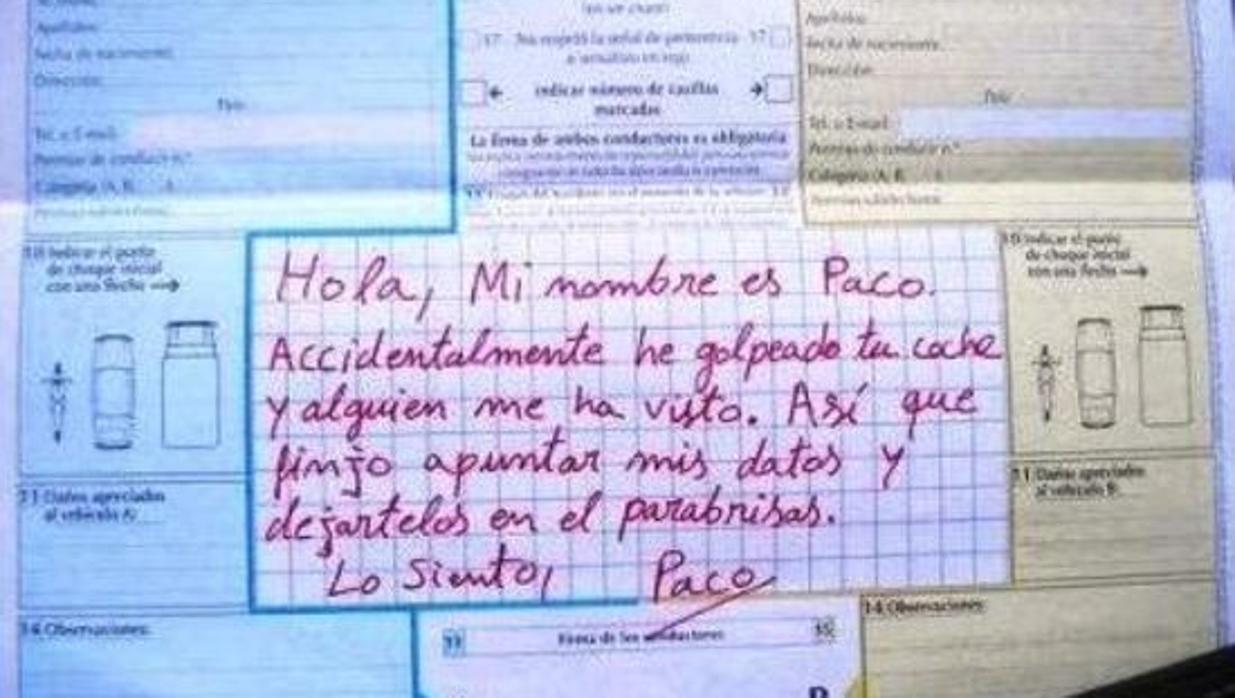 Apellidos:
Fecha de nacimiento:
Dirección:
País:
Tel. o E-mail:
Permiso de conducir n.º
Categoría (A, B, ...)
17 No respetó la señal de 17
o semáforo en rojo
← indicar número de casillas →
marcadas
La firma de ambos conductores es obligatoria
Apellidos:
Fecha de nacimiento:
Dirección:
País:
Tel. o E-mail:
Permiso de conducir n.º
Categoría (A, B, ...)
10 Indicar el punto
de choque inicial
con una flecha →
Hola, Mi nombre es Paco.
Accidentalmente he golpeado tu coche
y alguien me ha visto. Así que
finjo apuntar mis datos y
dejartelos en el parabrisas.
Lo Siento, Paco
10 Indicar el punto
de choque inicial
con una flecha →
11 Daños apreciados
al vehículo A:
11 Daños apreciados
al vehículo B:
14 Observaciones:
15 Firma de los conductores 15
14 Observaciones:
B